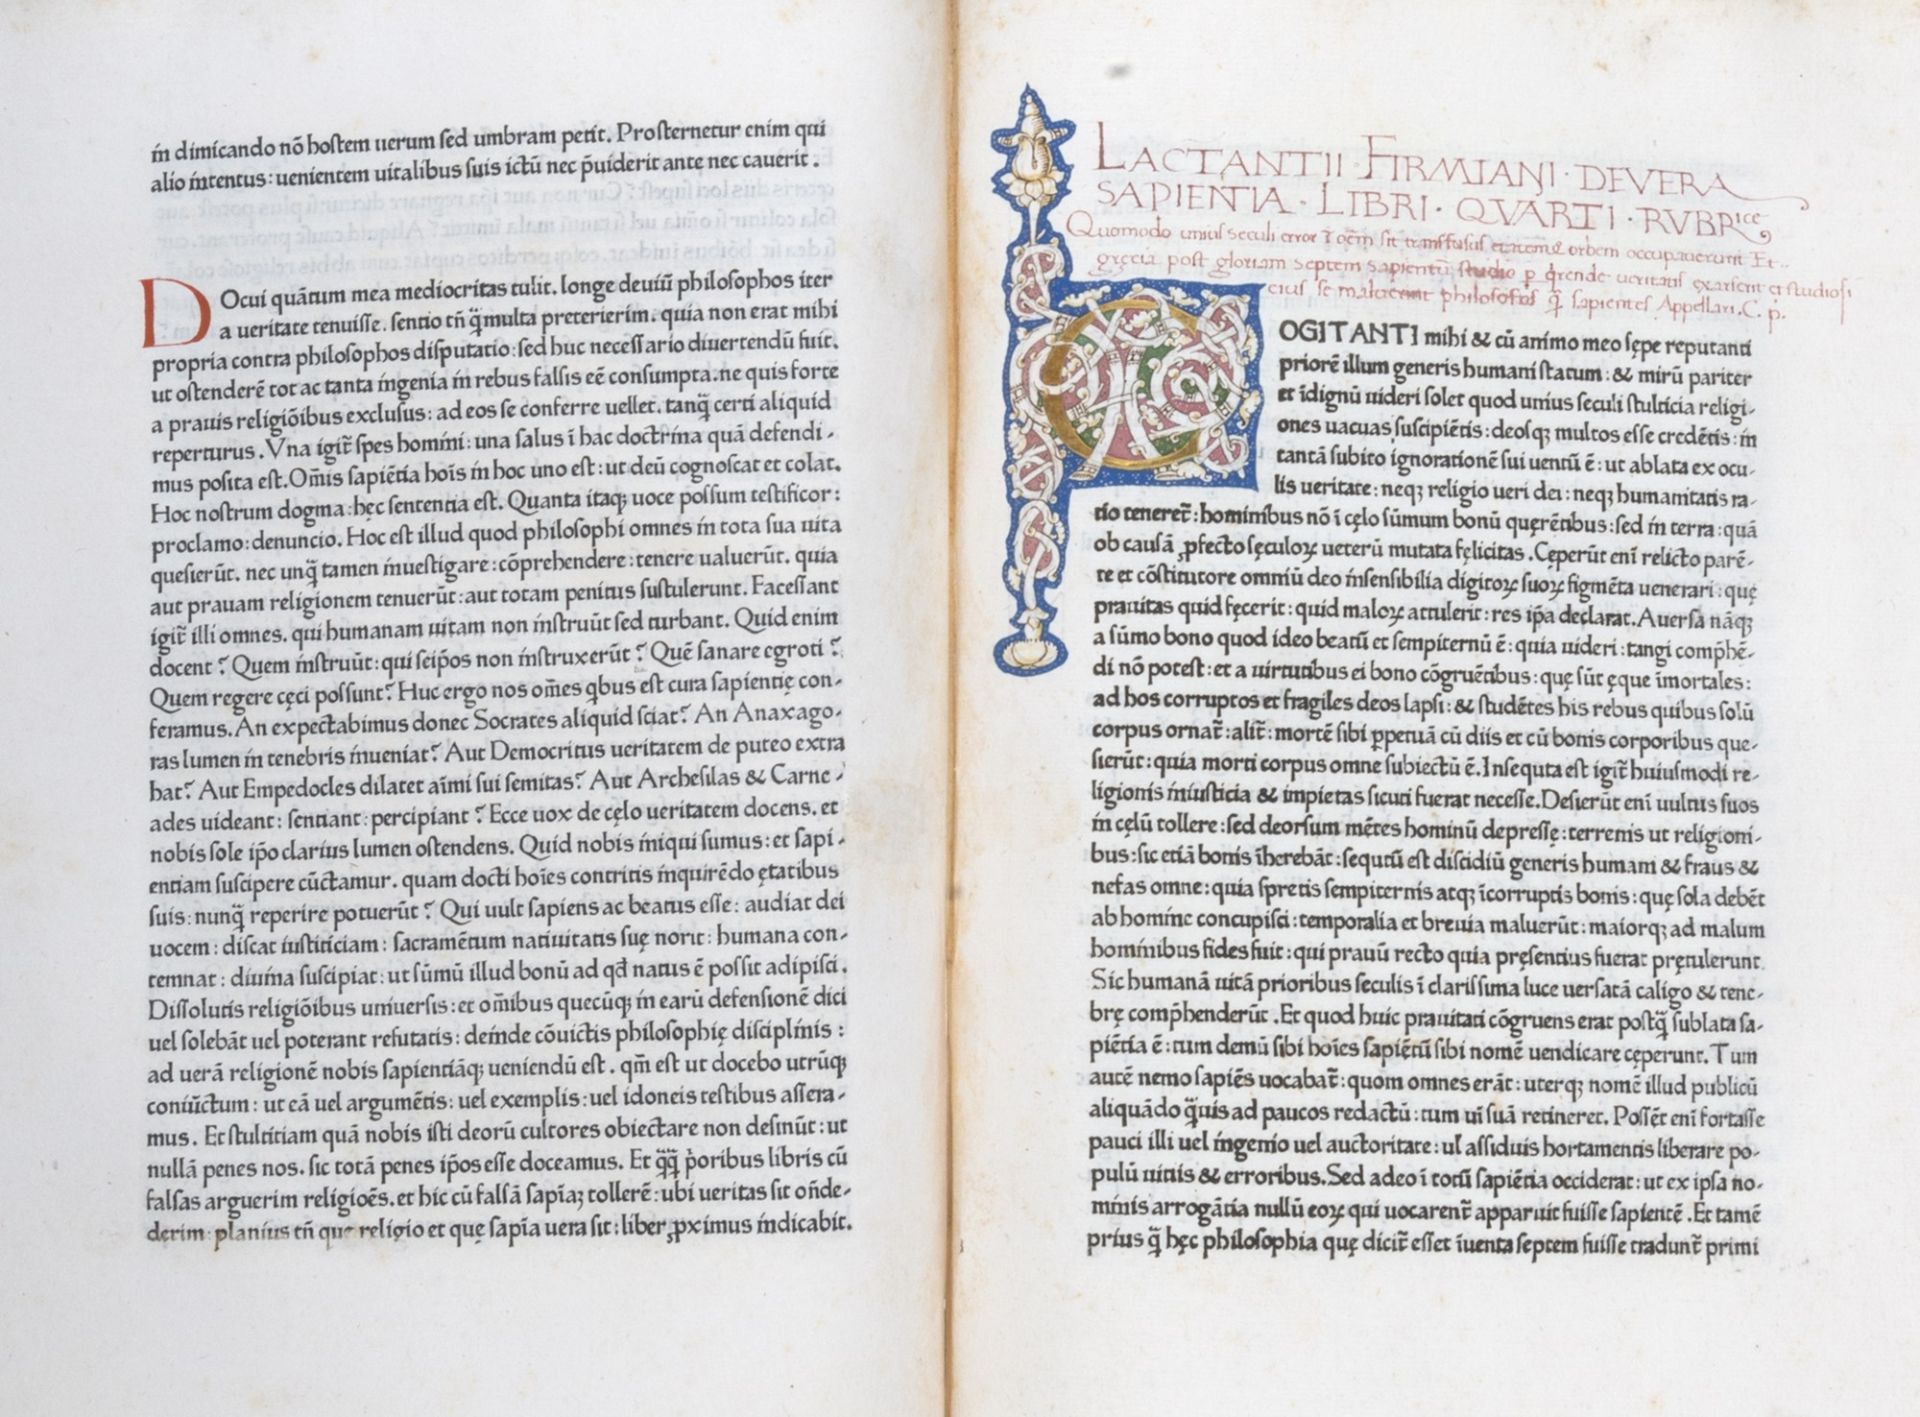 in dimicando nō hostem uerum sed umbram petit. Prosternetur enim qui
alio intentus: uenientem uitalibus suis ictū nec p̄uiderit ante nec cauerit.
DOcui quātum mea mediocritas tulit. longe deuiū philosophos iter
a ueritate tenuisse. sentio tñ q̄ multa preterierim. quia non erat mihi
propria contra philosophos disputatio: sed huc necessario diuertendū fuit.
ut ostenderē tot ac tanta ingenia in rebus falsis eē consumpta. ne quis forte
a prauis religiōibus exclusus: ad eos se conferre uellet. tanq̄ certi aliquid
reperturus. Vna igit̄ spes homini: una salus ī hac doctrina quā defendi-
mus posita est. Om̄is sapiētia hoīs in hoc uno est: ut deū cognoscat et colat.
Hoc nostrum dogma: hęc sententia est. Quanta itaqꝫ uoce possum testificor:
proclamo: denuncio. Hoc est illud quod philosophi omnes in tota sua uita
quesierūt. nec unq̄ tamen inuestigare: cōprehendere: tenere ualuerūt. quia
aut prauam religionem tenuerūt: aut totam penitus sustulerunt. Facessant
igit̄ illi omnes. qui humanam uitam non instruūt sed turbant. Quid enim
docent? Quem instruūt: qui seip̄os non instruxerūt? Quē sanare egroti?
Quem regere cęci possunt? Huc ergo nos om̄es q̇bus est cura sapientię con-
feramus. An expectabimus donec Socrates aliquid sciat? An Anaxago-
ras lumen in tenebris inueniat? Aut Democritus ueritatem de puteo extra
hat? Aut Empedocles dilatet aīmi sui semitas? Aut Archesilas & Carne-
ades uideant: sentiant: percipiant? Ecce uox de cęlo ueritatem docens. et
nobis sole ip̄o clarius lumen ostendens. Quid nobis iniqui sumus: et sapi-
entiam suscipere cūctamur. quam docti hoīes contritis inquirēdo ętatibus
suis: nunq̄ reperire potuerūt? Qui uult sapiens ac beatus esse: audiat dei
uocem: discat iusticiam: sacramētum natiuitatis suę norit: humana con-
temnat: diuina suscipiat: ut sūmū illud bonū ad qd̄ natus ē possit adipisci.
Dissolutis religiōibus uniuersis: et om̄ibus quecūqꝫ in earū defensionē dici
uel solebāt uel poterant refutatis: deinde cōuictis philosophię disciplinis:
ad uerā religionē nobis sapientiāqꝫ ueniendū est. qm̄ est ut docebo utrūqꝫ
coniūctum: ut eā uel argumētis: uel exemplis: uel idoneis testibus assera-
mus. Et stultitiam quā nobis isti deorū cultores obiectare non desinūt: ut
nullā penes nos. sic totā penes ip̄os esse doceamus. Et q̄q̄ p̄oribus libris cū
falsas arguerim religioēs. et hic cū falsā sapīaꝫ tollerē: ubi ueritas sit oñde-
derim: planius tñ que religio et quę sapīa uera sit: liber ꝓximus indicabit.
LACTANTII · FIRMIANI · DE VERA
SAPIENTIA · LIBRI · QVARTI · RVBRice
Quomodo unius seculi error ī oēm sit transfusus orbem occupauerunt Et
gręcia post gloriam septem sapientū studio ꝑ q̄rende ueritatis exarserit
cius se maluerint philosofos q̄ sapientes Appellari. C. p.
COGITANTI mihi & cū animo meo sępe reputanti
priorē illum generis humani statum: & mirū pariter
et īdignū uideri solet quod unius seculi stulticia religi-
ones uacuas suscipiētis: deosqꝫ multos esse credētis: in
tantā subito ignorationē sui uentū ē: ut ablata ex ocu-
lis ueritate: neqꝫ religio ueri dei: neqꝫ humanitatis ra-
tio teneret̄: hominibus nō ī cęlo sūmum bonū quęrētibus: sed in terra: quā
ob causā ꝓfecto sęculoꝝ ueterū mutata fęlicitas. Cęperūt enī relicto parē-
te et cōstitutore omniū deo insensibilia digitoꝝ suoꝝ figmēta uenerari: quę
prauitas quid fęcerit: quid maloꝝ attulerit: res ip̄a declarat. Auersa nāqꝫ
a sūmo bono quod ideo beatū et sempiternū ē: quia uideri: tangi comp̄hē-
di nō potest: et a uirtutibus ei bono cōgruētibus: quę sūt ęque īmortales:
ad hos corruptos et fragiles deos lapsi: & studētes his rebus quibus solū
corpus ornat̄: alit̄: mortē sibi ꝑpetuā cū diis et cū bonis corporibus que-
sierūt: quia morti corpus omne subiectū ē. Insequta est igit̄ huiusmodi re-
ligionis iniusticia & impietas sicuti fuerat necesse. Desierūt enī uultus suos
in cęlū tollere: sed deorsum mētes hominū depressę: terrenis ut religioni-
bus: sic etiā bonis īherebāt: sequtū est discidiū generis humani & fraus &
nefas omne: quia spretis sempiternis atqꝫ īcorruptis bonis: quę sola debēt
ab homine concupisci: temporalia et breuia maluerūt: maiorqꝫ ad malum
hominibus fides fuit: qui prauū recto quia pręsentius fuerat prętulerunt
Sic humanā uitā prioribus seculis ī clarissima luce uersatā caligo & tene-
brę comp̄henderūt. Et quod huic prauitati cōgruens erat postq̄ sublata sa-
piētia ē: tum demū sibi hoīes sapiētū sibi nomē uendicare cęperunt. Tum
autē nemo sapiēs uocabat̄: quom omnes erāt: uterqꝫ nomē illud publicū
aliquādo q̄uis ad paucos redactū: tum uī suā retineret. Possēt enī fortasse
pauci illi uel ingenio uel auctoritate: ul̄ assiduis hortamentis liberare po-
pulū uitiis & erroribus. Sed adeo ī totū sapiētia occiderat: ut ex ipsa no-
minis arrogātia nullū eoꝝ qui uocarent̄ apparuit fuisse sapientē. Et tamē
prius q̄ hęc philosophia quę dicit̄ esset īuenta septem fuisse tradunt̄ primi